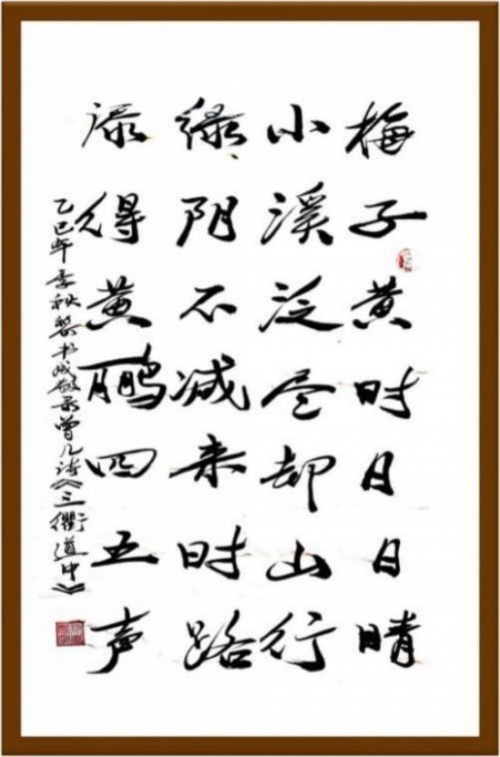 梅子黄时日日晴
小溪泛尽却山行
绿阴不减来时路
添得黄鹂四五声
乙巳年李秋书录曾几诗《三衢道中》